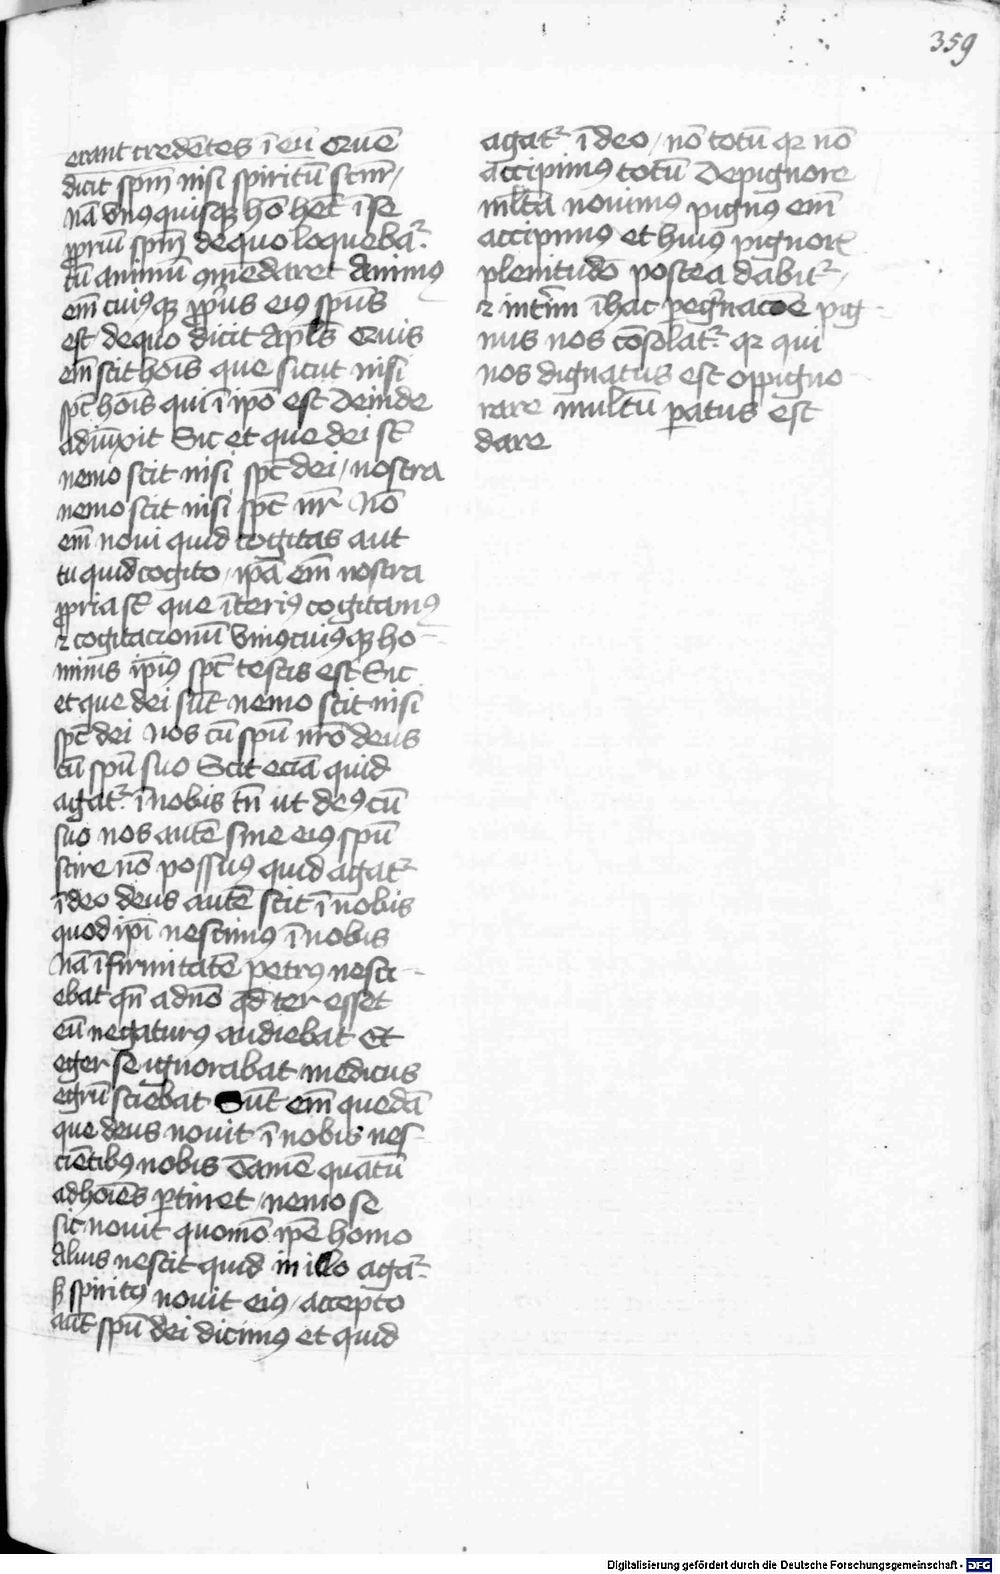 359
erant credētes ī eū Quē
dicit spm̄ nisi spiritū sctm̄ /
Nā vnꝰquisqꝫ hō hēt ī se
ꝓpriū spm̄ de quo loquebaᵗ
tū animū ꝯmēdaret Animꝰ
em̄ cuiꝰqꝫ ꝓpiꝰ eiꝰ spūs
est de quo dicit Apl̄s Quis
em̄ scit hoīs que sicut nisi
spc̄ hoīs qui ī ipō est Deinde
adiūxit Sic et que dei st̄
nemo scit nisi spc̄ dei / nostra
nemo scit nisi spc̄ nr̄ Nō
em̄ noui quid cogitas aut
tu quid cogito / ipā em̄ nostra
ꝓpria st̄ que īteriꝰ cogitamꝰ
⁊ cogitacionū vniꝰcuiꝰqꝫ ho-
minis ipiꝰ spc̄ testis est Sic
et que dei sūt nemo scit nisi
spc̄ dei Nos cū spū nr̄o deus
cū spū suo Scit eciā quid
agatᵗ ī nobis tn̄ ut deꝰ cū
suo nos autē sine eiꝰ spū
scire nō possumꝰ quid agatᵗ
ī deo deus autē scit ī nobis
quod ipī nescimꝰ ī nobis
Nā īfirmitatē petrꝰ nesci-
ebat qn̄ a dn̄o qd̄ ter esset
eū negaturꝰ audiebat Et
eger se ignorabat medicus
egrū sciebat Sūt em̄ quedā
que deus nouit ī nobis nes-
ciētibꝰ nobis Tamē quātū
ad hoīes ꝑtinet / nemo se
sic nouit quomō ipē homo
Alius nescit quid in illo agaᵗ
sꝫ spiritꝰ nouit eiꝰ / accepto
aut̄ spū dei dicimꝰ et quid
agatᵗ ī deo / nō totū qꝛ nō
accipimꝰ totū De pignore
ml̄ta nouimꝰ pignꝰ em̄
accipimꝰ et huiꝰ pignor̄
plenitudo postea dabiᵗ /
⁊ intim̄ ī hac peg̃nacōe pig-
nus nos cōsolatᵗ qꝛ qui
nos dignatus est oppigno-
rare multū paratus est
dare
Digitalisierung gefördert durch die Deutsche Forschungsgemeinschaft - DFG